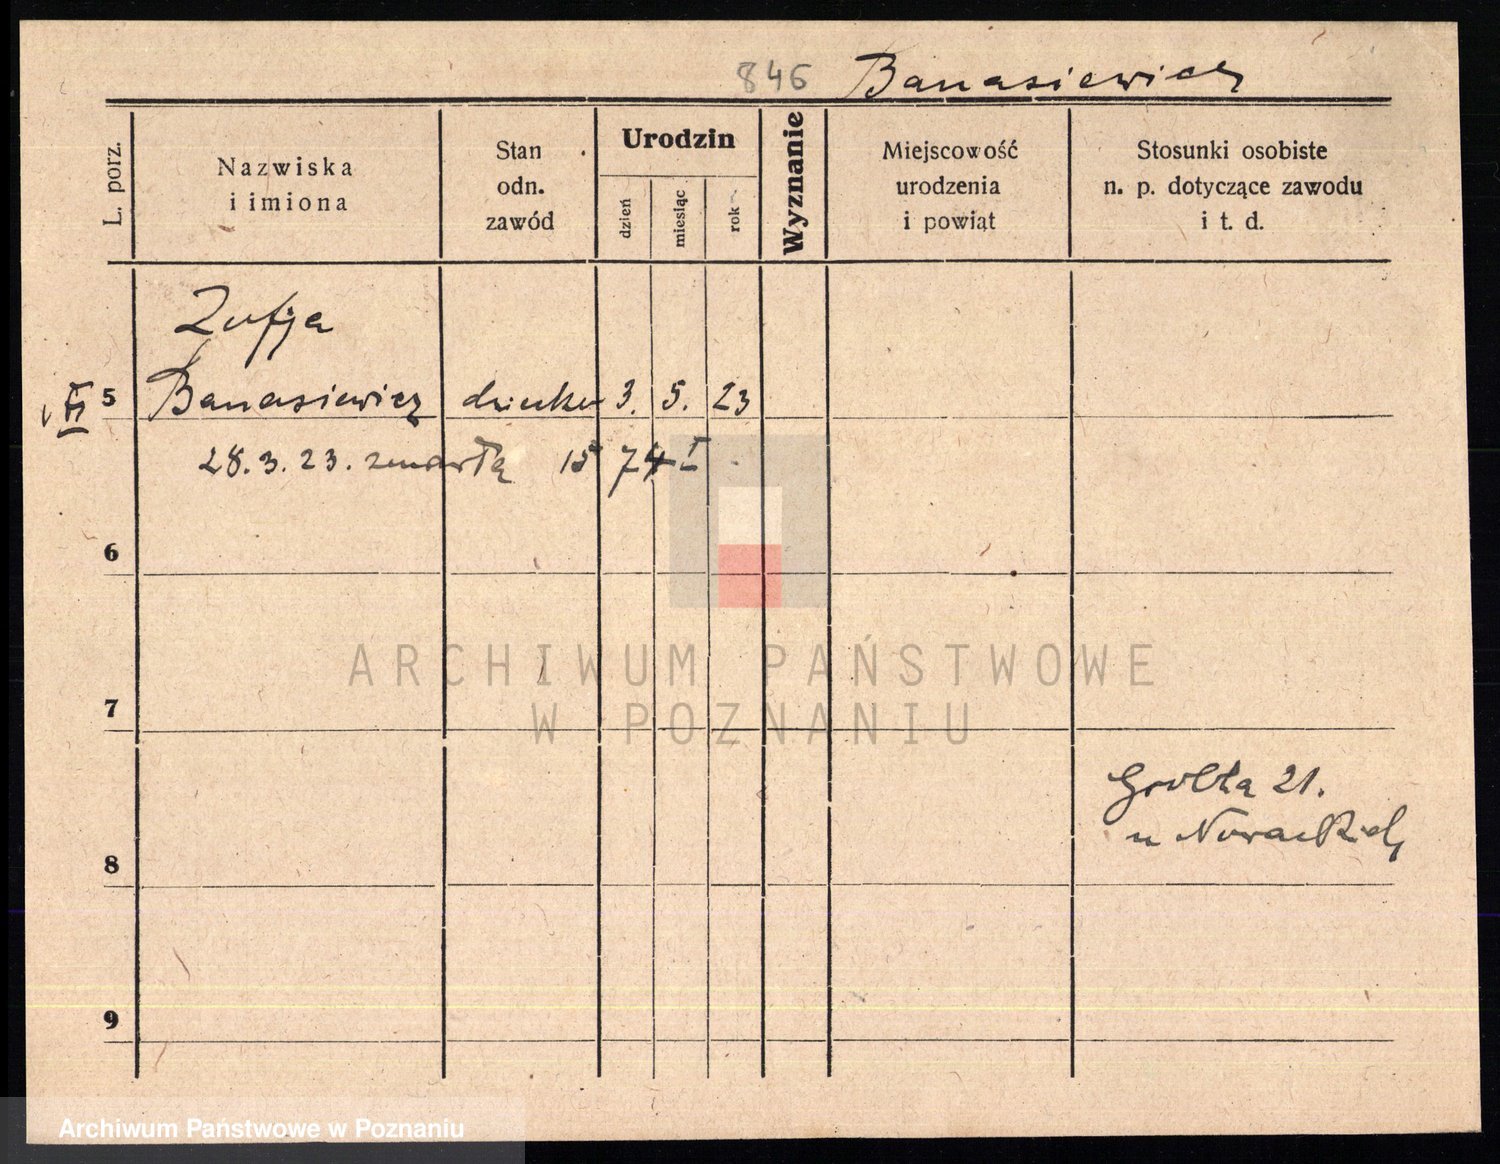 846 Banasiewicz
L. porz.
Nazwiska
i imiona
Stan
odn.
zawód
Urodzin
dzień
miesiąc
rok
Wyznanie
Miejscowość
urodzenia
i powiat
Stosunki osobiste
n. p. dotyczące zawodu
i t. d.
Zofja
5 Banasiewicz dziecko 3. 5. 23
28.3.23. zmarłą 15 74 I
6
7
Grobla 21.
u Nowackiej
8
9
ARCHIWUM PAŃSTWOWE
W POZNANIU
Archiwum Państwowe w Poznaniu